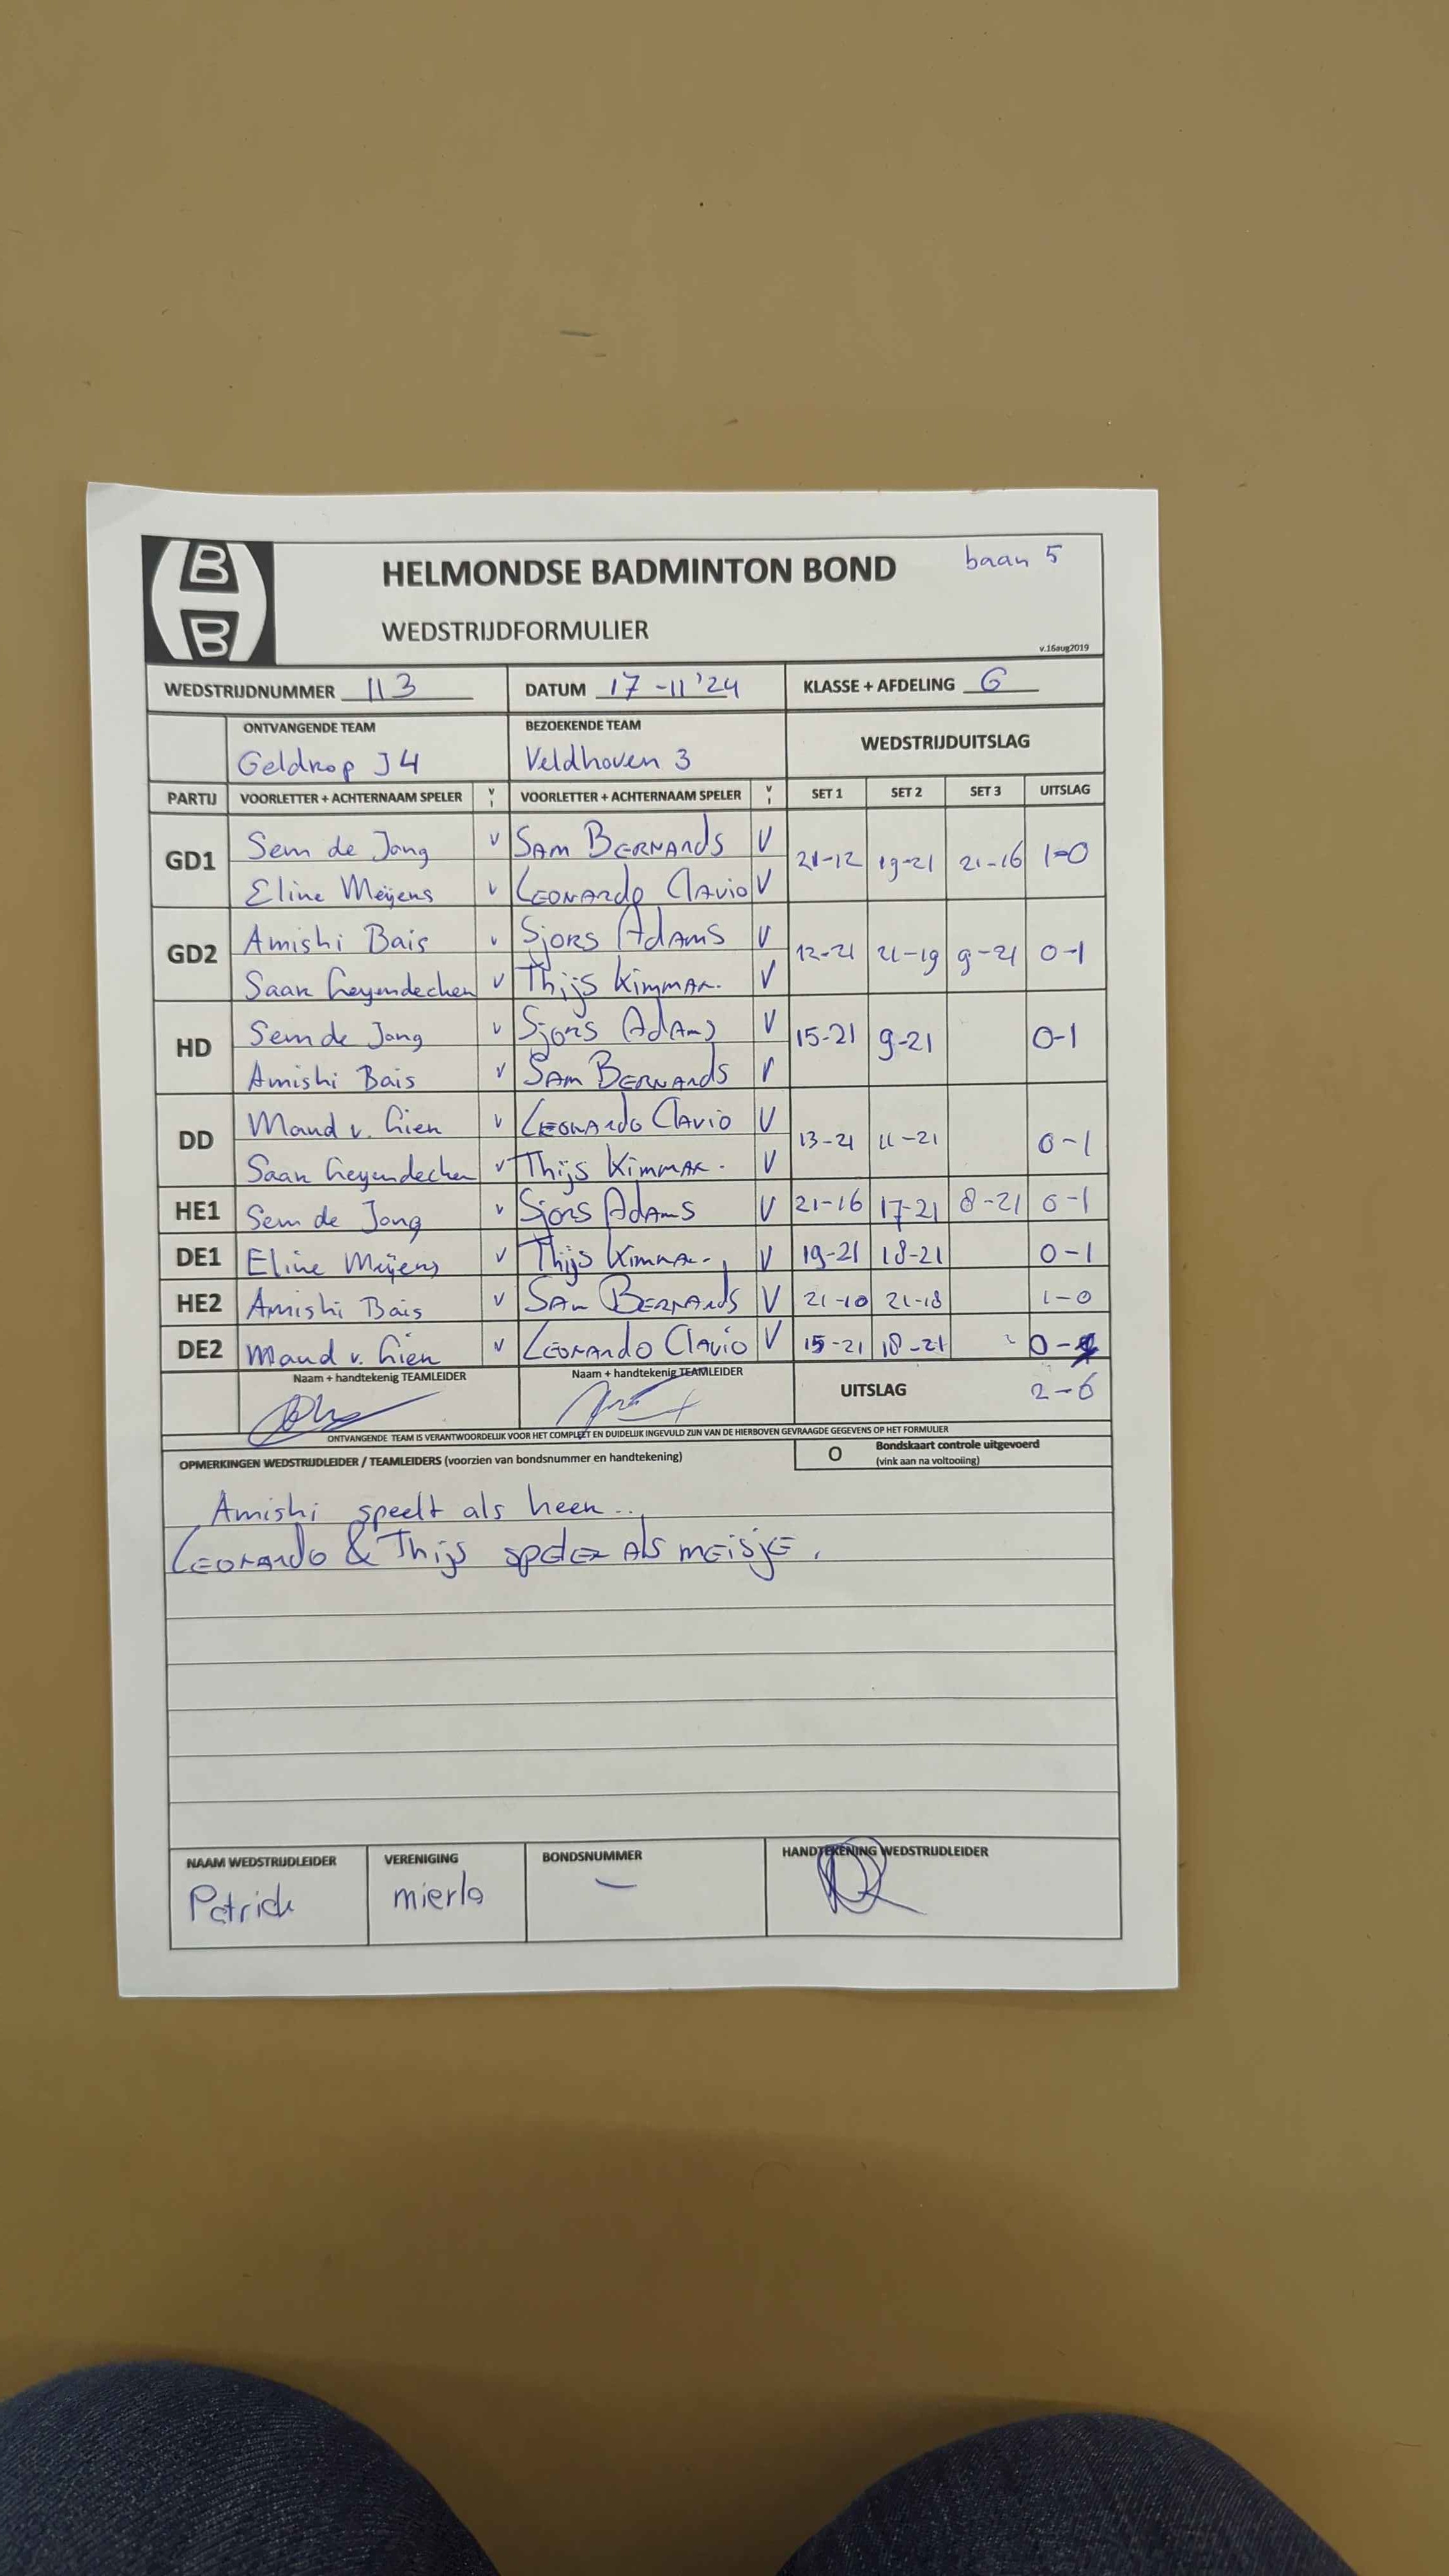 B
B
HELMONDSE BADMINTON BOND
baan 5
WEDSTRIJDFORMULIER
v.16aug2019
WEDSTRIJDNUMMER 113 DATUM 17-11'24 KLASSE + AFDELING G
ONTVANGENDE TEAM BEZOEKENDE TEAM WEDSTRIJDUITSLAG
Geldrop J4 Veldhoven 3
PARTIJ VOORLETTER + ACHTERNAAM SPELER V I VOORLETTER + ACHTERNAAM SPELER V I SET 1 SET 2 SET 3 UITSLAG
GD1 Sem de Jong v SAM BERNARDS V 21-12 19-21 21-16 1-0
Eline Meijens v LEONARDO CLAVIO V
GD2 Amishi Bais v SJORS ADAMS V 12-21 21-19 9-21 0-1
Saar v Thijs V
HD Sem de Jong v SJORS ADAMS V 15-21 9-21 0-1
Amishi Bais v SAM BERNARDS V
DD Maud v. Lien v LEONARDO CLAVIO V 13-21 11-21 0-1
Saar v Thijs V
HE1 Sem de Jong v SJORS ADAMS V 21-16 17-21 8-21 0-1
DE1 Eline Meijens v Thijs V 19-21 18-21 0-1
HE2 Amishi Bais v SAM BERNARDS V 21-10 21-18 1-0
DE2 Maud v. Lien v LEONARDO CLAVIO V 15-21 18-21 0-1
Naam + handtekenig TEAMLEIDER Naam + handtekenig TEAMLEIDER UITSLAG 2-6
ONTVANGENDE TEAM IS VERANTWOORDELIJK VOOR HET COMPLEET EN DUIDELIJK INGEVULD ZIJN VAN DE HIERBOVEN GEVRAAGDE GEGEVENS OP HET FORMULIER
OPMERKINGEN WEDSTRIJDLEIDER / TEAMLEIDERS (voorzien van bondsnummer en handtekening) O Bondskaart controle uitgevoerd
(vink aan na voltooiing)
Amishi speelt als heer..
LEONARDO & Thijs spelen als meisje.
NAAM WEDSTRIJDLEIDER VERENIGING BONDSNUMMER HANDTEKENING WEDSTRIJDLEIDER
Patrick mierlo —